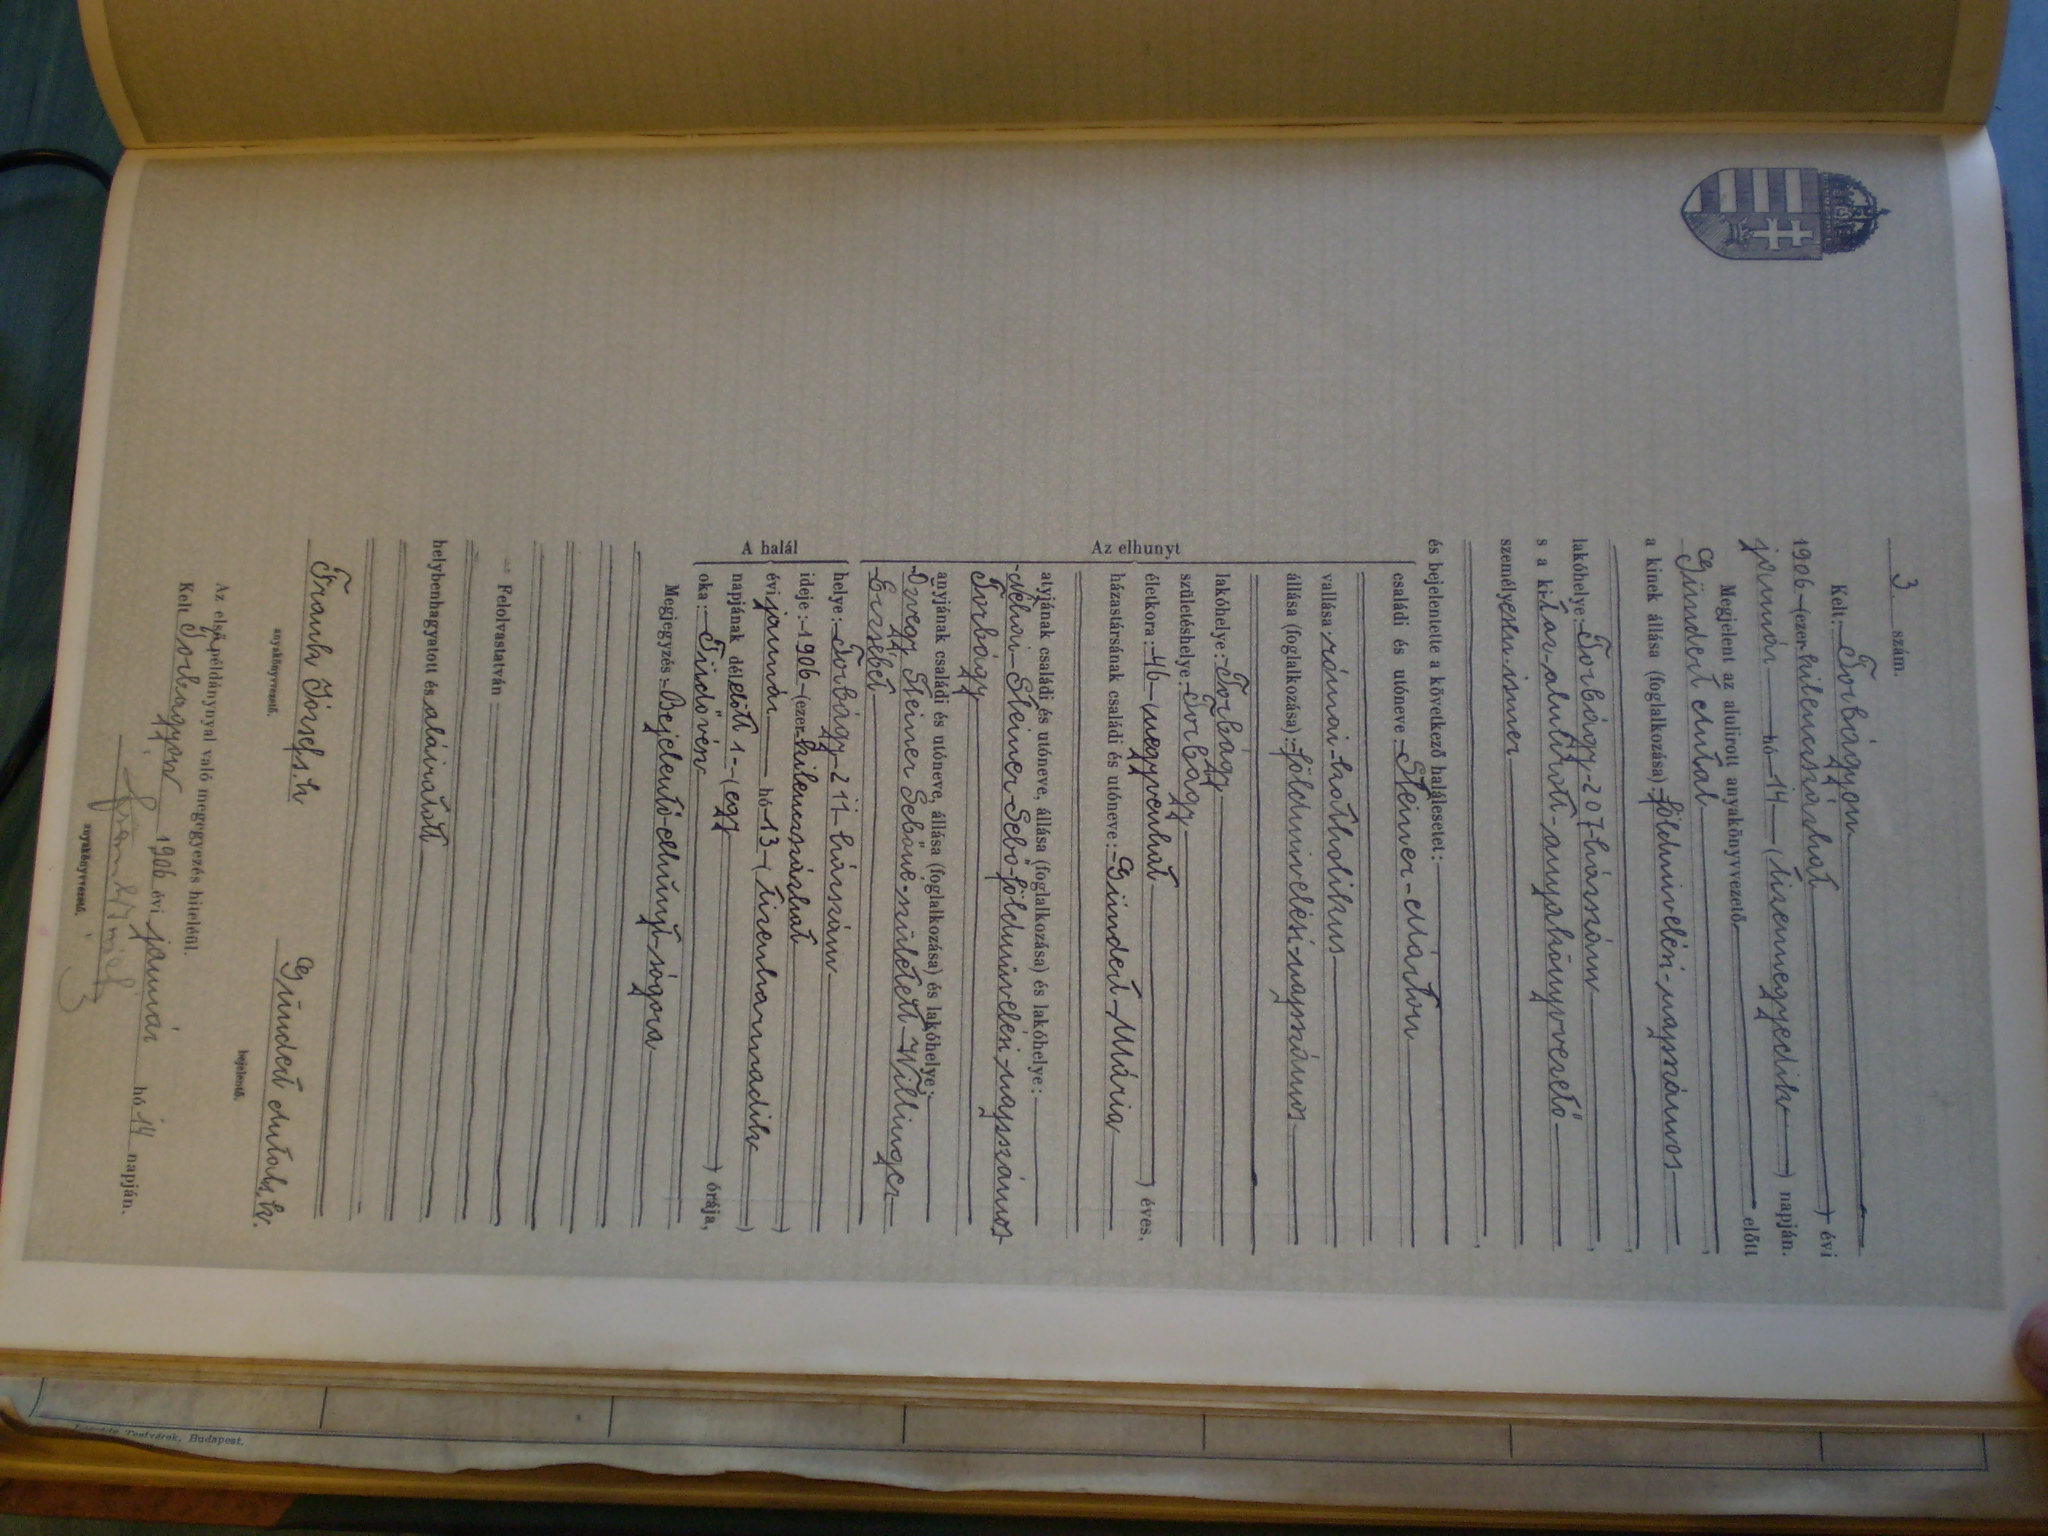 3 szám.
Kelt: Torbágyon
1906 (ezerkilencszázhat) évi
január hó 14 (tizennegyedik) napján.
Megjelent az alulirott anyakönyvvezető előtt
Gündert Antal,
a kinek állása (foglalkozása): földmivelési napszámos,
lakóhelye: Torbágy 207 házszám,
s a kit az alulirott anyakönyvvezető
személyesen ismer,
és bejelentette a következő halálesetet:
Az elhunyt
családi és utóneve: Steiner Márton
vallása: római katholikus
állása (foglalkozása): földmivelési napszámos
lakóhelye: Torbágy
születéshelye: Torbágy
életkora: 46 (negyvenhat) éves,
házastársának családi és utóneve: Gündert Mária
atyjának családi és utóneve, állása (foglalkozása) és lakóhelye:
néhai Steiner Sebő földmüvelési napszámos
Torbágy
anyjának családi és utóneve, állása (foglalkozása) és lakóhelye:
Özvegy Steiner Sebőné született Willinger
Erzsébet
A halál
helye: Torbágy 211 házszám
ideje: 1906 (ezerkilencszázhat)
évi január hó 13 (tizenharmadik)
napjának délelőtt 1 (egy) órája,
oka: Tüdővész
Megjegyzés: Bejelentő elhunyt sógora
Felolvastatván
helybenhagyatott és aláiratott
Frank József s. k.
anyakönyvvezető.
Gündert Antal s. k.
bejelentő.
Az első példánynyal való megegyezés hiteléül.
Kelt Torbágyon 1906 évi január hó 14 napján.
Frank József
anyakönyvvezető.
Testvérek, Budapest.